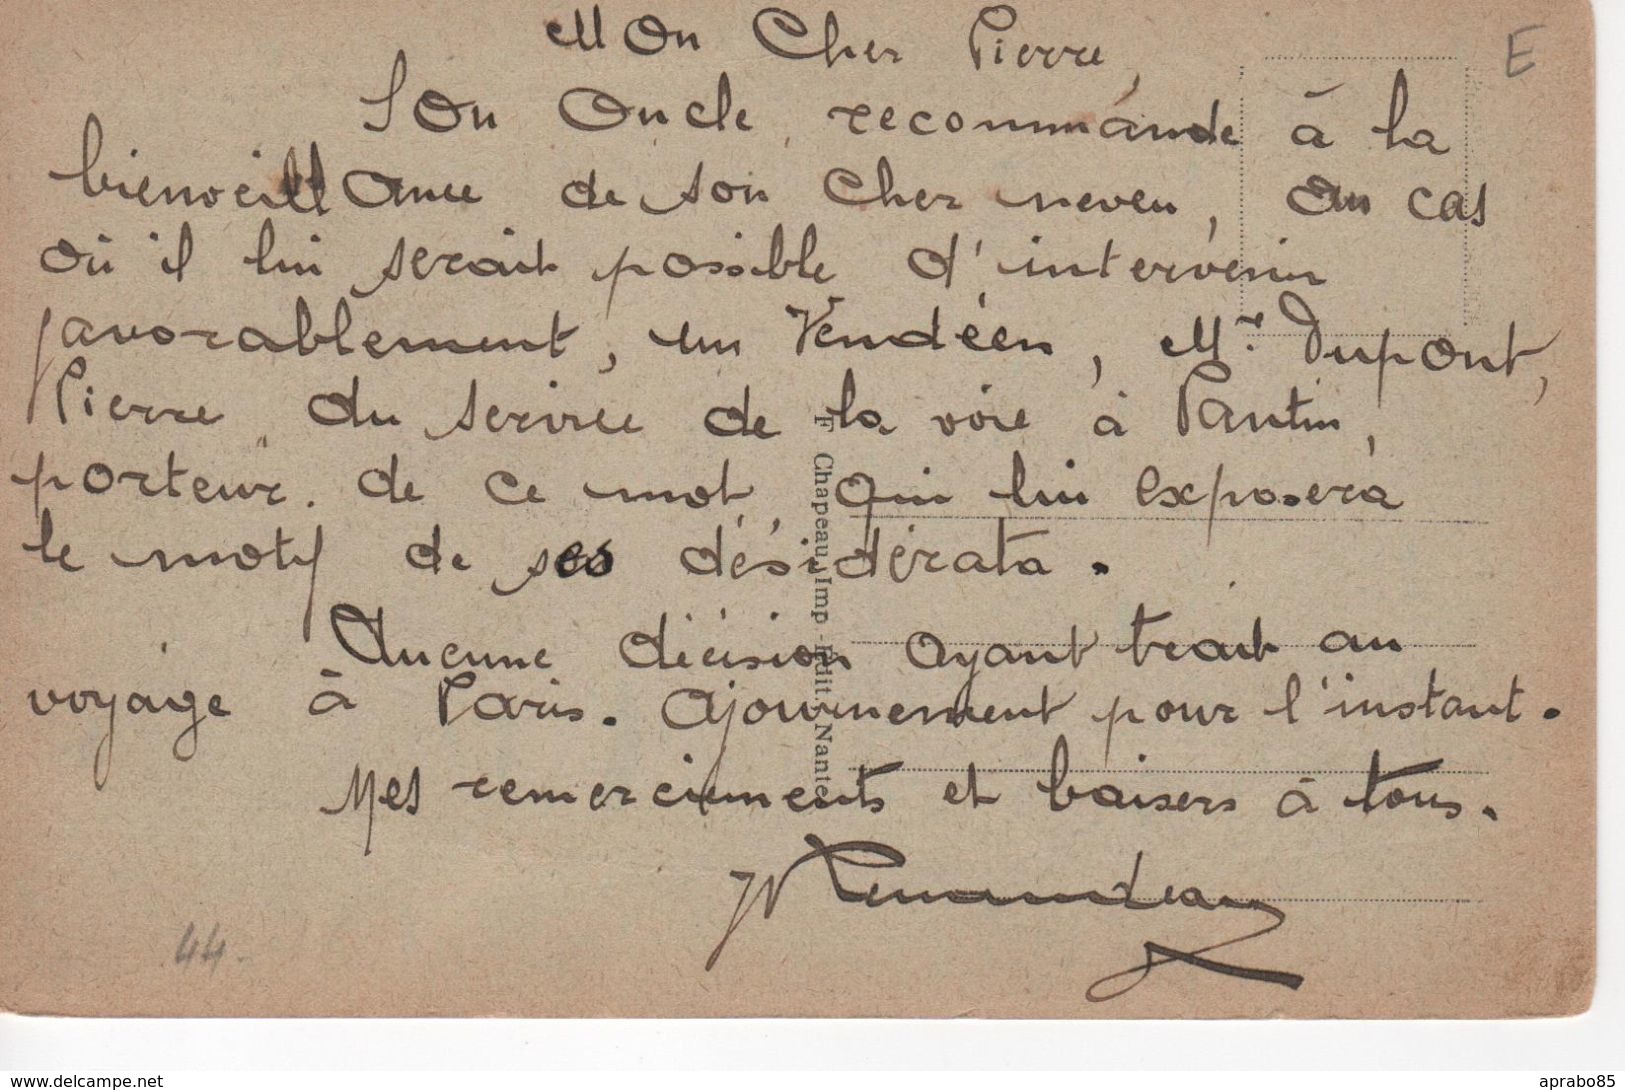 Mon Cher Pierre,
Son Oncle recommande à la
bienveillance de son Cher neveu, au cas
où il lui serait possible d'intervenir
favorablement, un Vendéen, Mr. Dupont,
Pierre, du service de la voie à Pantin,
porteur de ce mot, qui lui exposera
le motif de ses désidérata.
Aucune décision ayant trait au
voyage à Paris. Ajournement pour l'instant.
Mes remerciments et baisers à tous.
Renaudeau
F. Chapeau, Imp.-Édit., Nantes
E
44.
www.delcampe.net
aprabo85